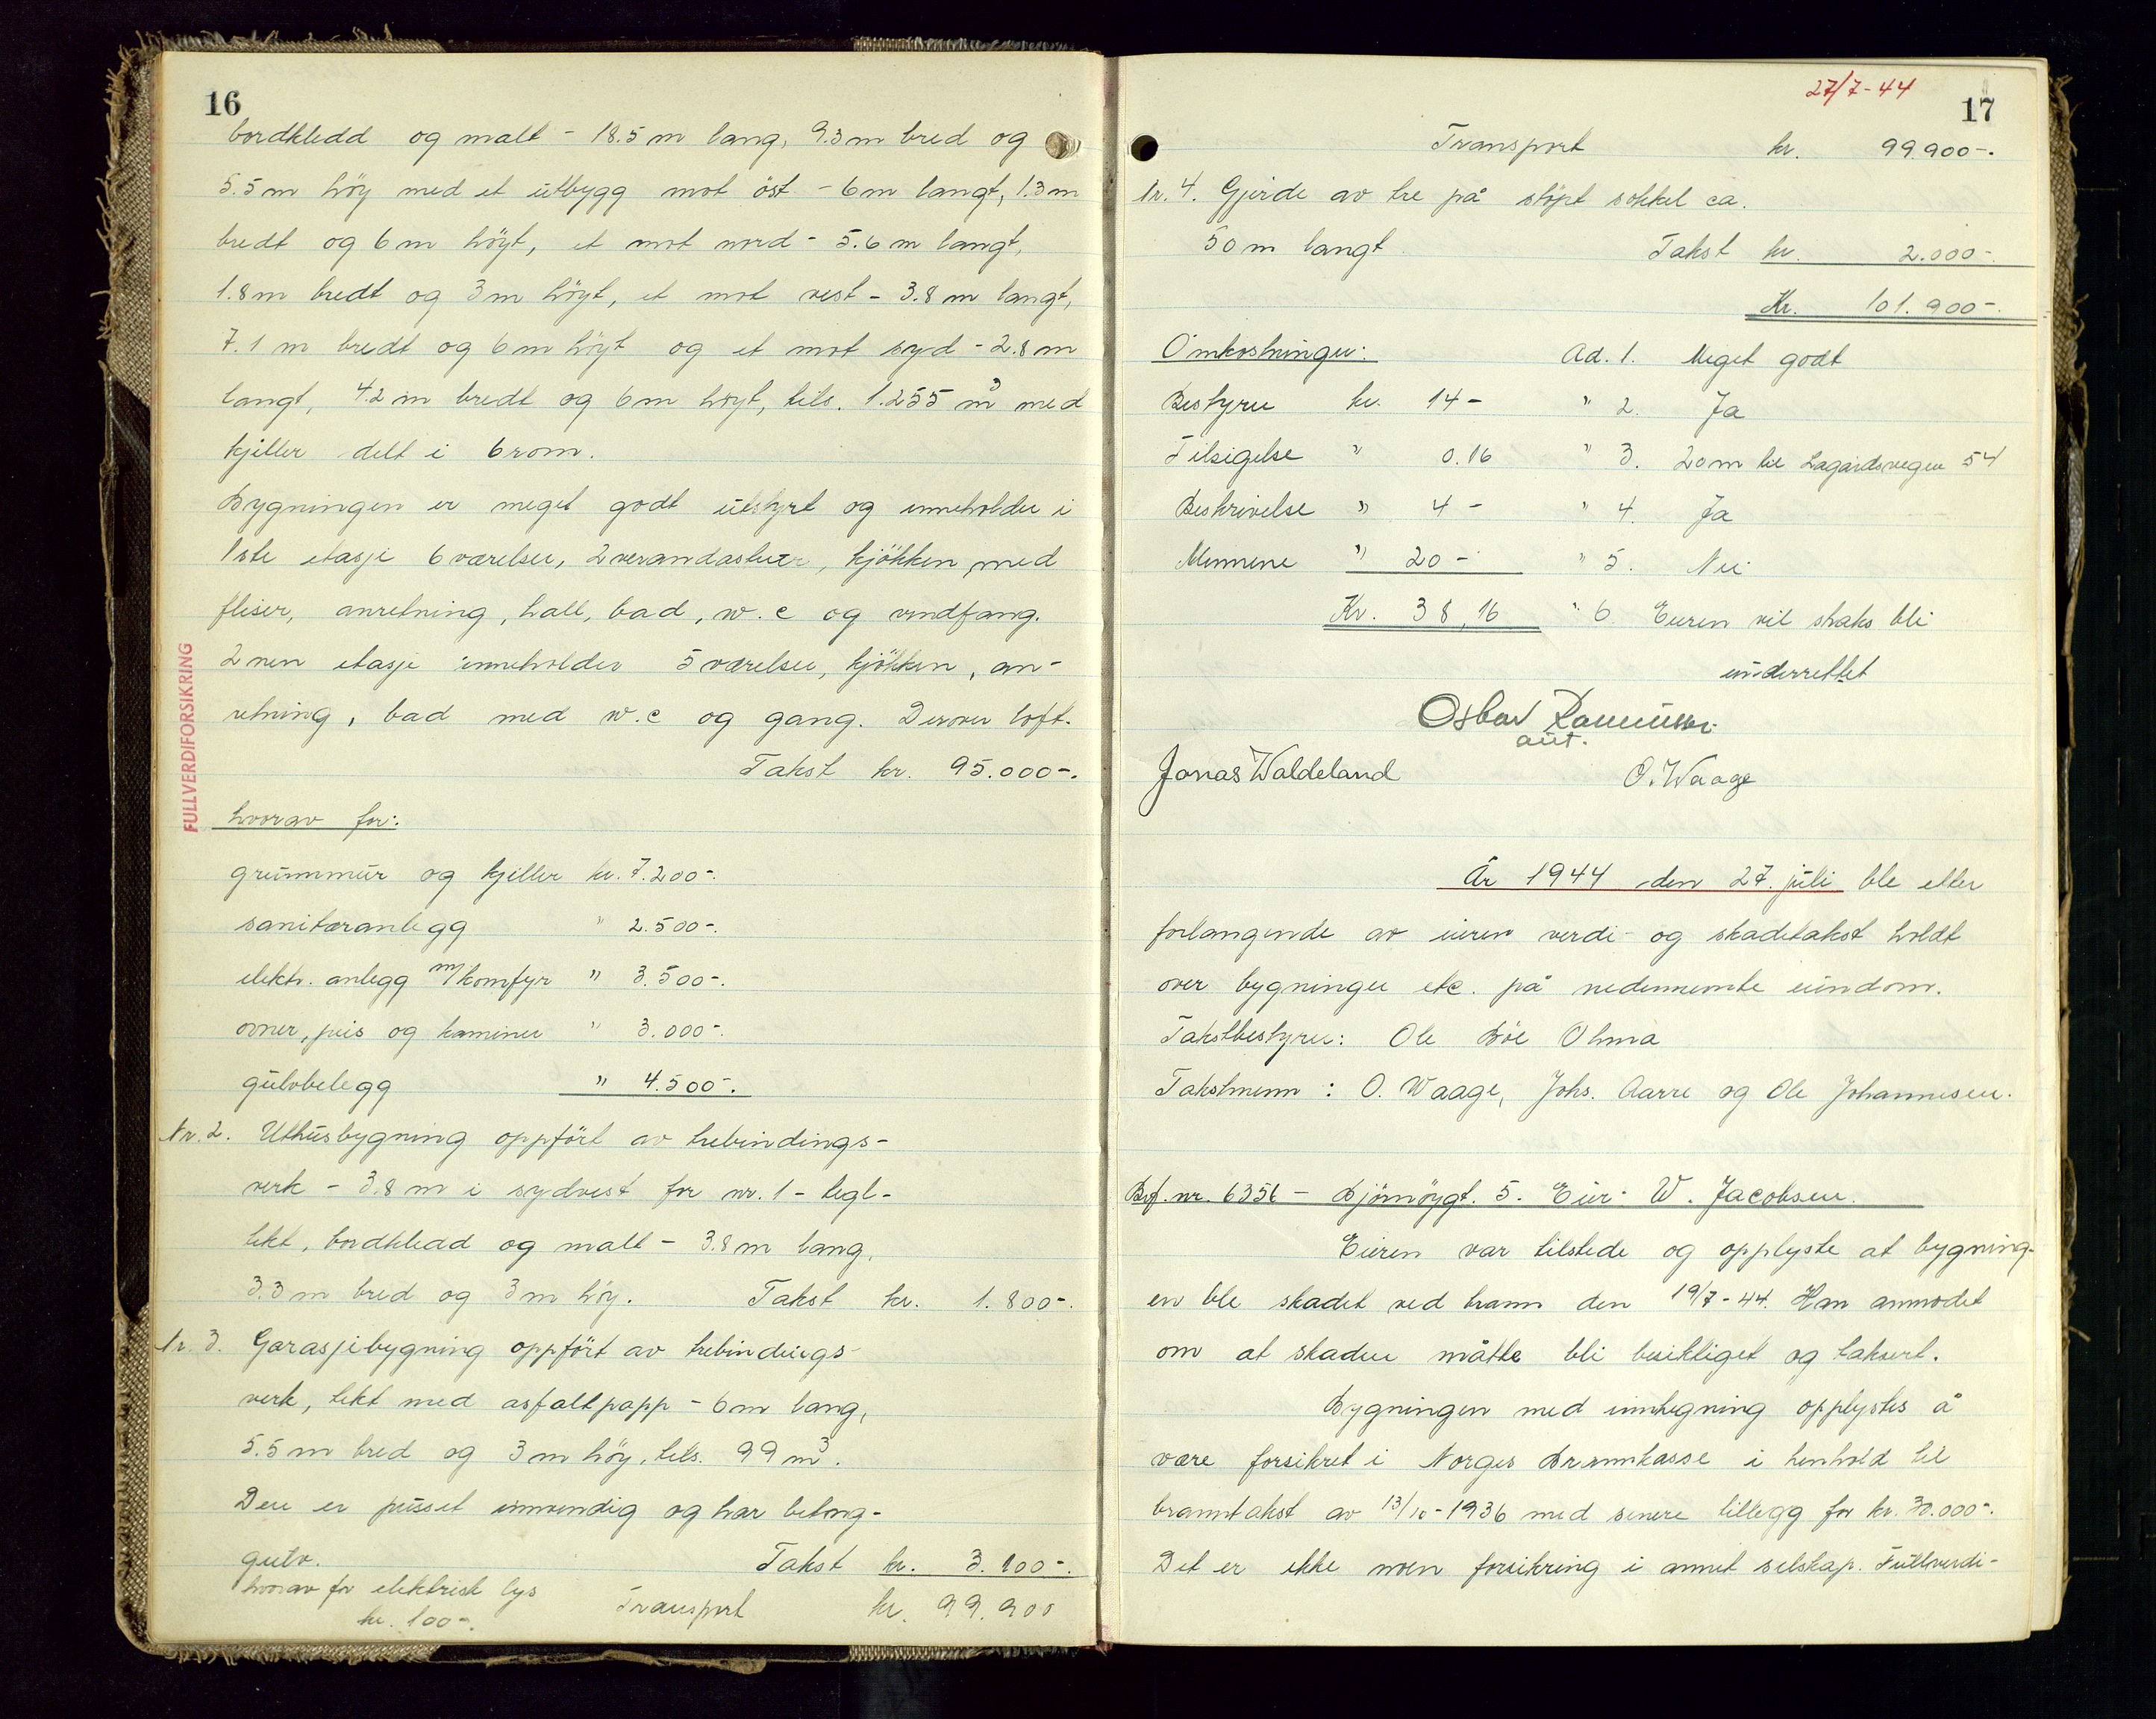 16
bordkledd og malt - 18.5 m lang, 9.3 m bred og
5.5 m höy med et utbygg mot öst - 6 m langt, 1.3 m
bredt og 6 m höyt, et mot nord - 5.6 m langt,
1.8 m bredt og 3 m höyt, et mot vest - 3.8 m langt,
7.1 m bredt og 6 m höyt og et mot syd - 2.8 m
langt, 4.2 m bredt og 6 m höyt, tils. 1.255 m³ med
kjeller delt i 6 rom.
Bygningen er meget godt utstyrt og inneholder i
1ste etasje 6 værelser, 2 verandastuer, kjökken med
fliser, anretning, hall, bad, w.c og vindfang.
2nen etasje inneholder 5 værelser, kjökken, an-
retning, bad med w.c og gang. Derover loft.
Takst kr. 95.000-.
FULLVERDIFORSIKRING
hvorav for:
grunnmur og kjeller kr. 7.200-.
sanitæranlegg " 2.500-.
elektr. anlegg m/komfyr " 3.500-.
ovner, peis og kaminer " 3.000-.
gulvbelegg " 4.500-.
Nr. 2. Uthusbygning oppfört av trebindings-
verk - 3.8 m i sydvest for nr. 1 - tegl-
tekt, bordkledd og malt - 3.8 m lang,
3.3 m bred og 3 m höy. Takst kr. 1.800-.
Nr. 3. Garasjebygning oppfört av trebindings-
verk, tekt med asfaltpapp - 6 m lang,
5.5 m bred og 3 m höy, tils. 99 m³.
Den er pusset innvendig og har betong-
gulv. Takst kr. 3.100-.
hvorav for elektrisk lys
kr. 100-. Transport kr. 99.900
27/7-44
17
Transport kr. 99.900-.
Nr. 4. Gjerde av tre på stöpt sokkel ca.
50 m langt. Takst kr. 2.000-.
Kr. 101.900-.
Omkostninger: Ad. 1. Meget godt
Bestyrer kr. 14- " 2. Ja
Tilsigelse " 0.16 " 3. 20 m til Lagårdsvegen 54
Beskrivelse " 4- " 4. Ja
Mennene " 20- " 5. Nei
Kr. 38,16 " 6. Eieren vil straks bli
underrettet
aut.
Jonas Waldeland O. Waage
År 1944 den 27. juli ble etter
forlangende av eieren verdi- og skadetakst holdt
over bygninger etc. på nedennevnte eiendom.
Takstbestyrer: Ole Böe Ohma
Takstmenn: O. Waage, Johs. Aarre og Ole Johannesen.
Brf. nr. 6356 - Bjömöygt. 5. Eier: W. Jacobsen.
Eieren var tilstede og opplyste at bygning-
en ble skadet ved brann den 19/7-44. Han anmodet
om at skaden måtte bli besiktiget og taksert.
Bygningen med innhegning opplystes å
være forsikret i Norges Brannkasse i henhold til
branntakst av 13/10-1936 med senere tillegg for kr. 30.000-.
Det er ikke noen forsikring i annet selskap. Fullverdi-